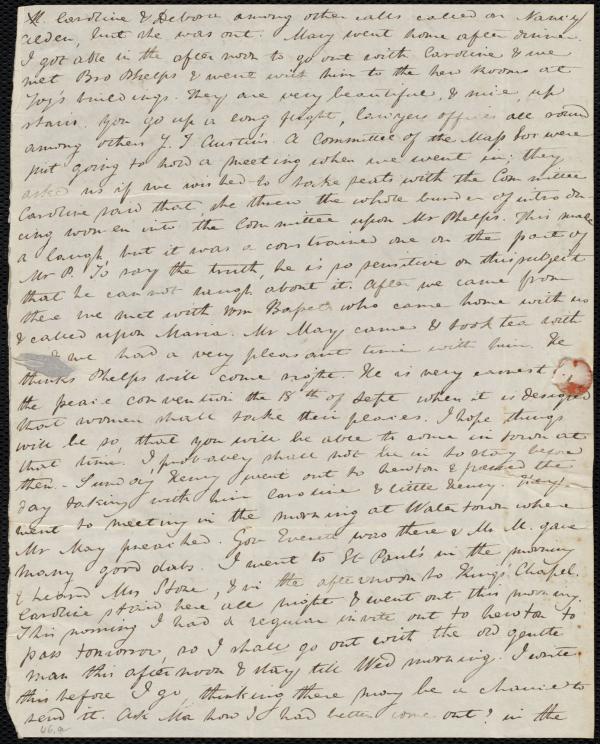 M. Caroline & Debora among other calls called on Nancy
Alden, but she was out. Mary went home after dinner.
I got able in the afternoon to go out with Caroline & we
met Bro Phelps & went with him to the new rooms at
Joy's buildings. They are very beautiful, & nice, up
stairs. You go up a long flight, lawyers offices all round
among others J. T Austin's. A Committee of the Mass Soc were
just going to hold a meeting when we went in; they
asked us if we wished to take seats with the Committee
Caroline said that she threw the whole burden of introdu-
cing women into the Committee upon Mr Phelps. This made
a laugh, but it was a constrained one on the part of
Mr P. To say the truth, he is so sensitive on this subject
that he can not laugh about it. After we came from
there we met with Wm Basset who came home with us
& called upon Maria. Mr May came & took tea with
& we had a very pleasant time with him. He
thinks Phelps will come right. He is very earnest
the peace convention the 18th of Sept when it is designed
that women shall take their places. I hope things
will be so, that you will be able to come in town at
that time. I probably shall not be in to stay before
then. Sunday Henry went out to Newton & passed the
day taking with him Caroline & little Henry. They
went to meeting in the morning at Watertown where
Mr May preached. Gov Everett was there & Mr M. gave
many good dabs. I went to St Paul's in the morning
& heard Mr Stone, & in the afternoon to King's Chapel.
Caroline staid here all night & went out this morning.
This morning I had a regular invite out to Newton to
pass tomorrow, so I shall go out with the old gentle
man this afternoon & stay till Wed morning. I write
this before I go, thinking there may be a chance to
send it. Ask Ma how I had better come out? in the